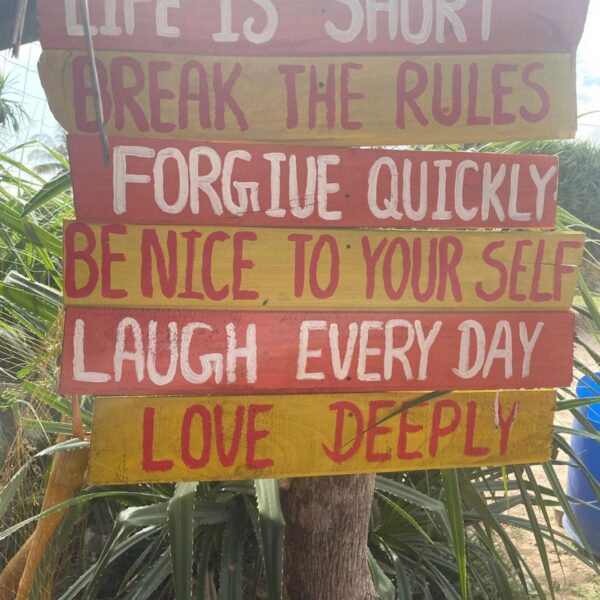 LIFE IS SHORT
BREAK THE RULES
FORGIVE QUICKLY
BE NICE TO YOUR SELF
LAUGH EVERY DAY
LOVE DEEPLY